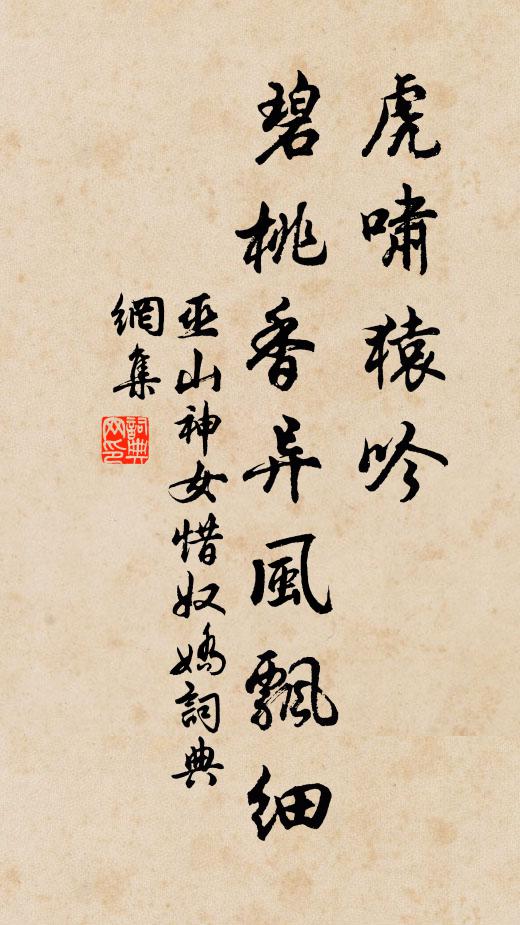 虎嘯猿吟
碧桃香异風飄細
巫山神女惜奴嬌詞典
網集
詞典网印